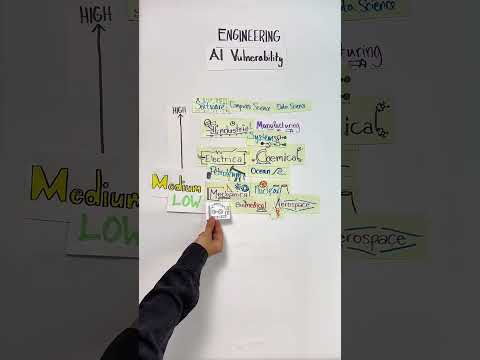 ENGINEERING
AI Vulnerability
HIGH
Software Computer Science Data Science
Industrial Manufacturing
Systems
Electrical Chemical
Petroleum Ocean
Medium
Mechanical Nuclear
LOW
Biomedical Aerospace
HIGH
Data Science
turing
ical
Medium
LOW
Aerospace